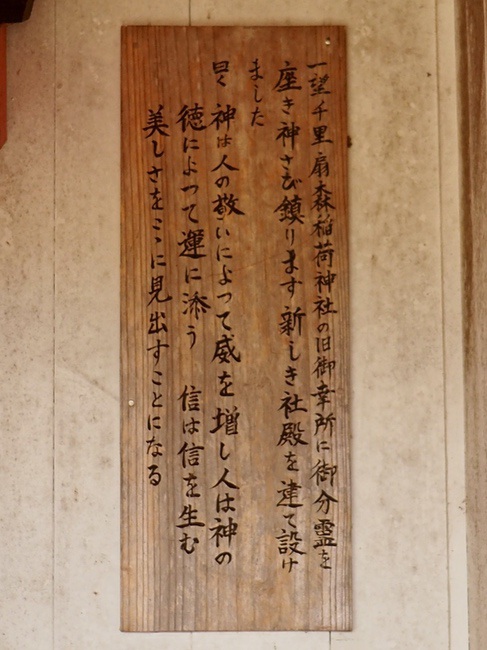 一望千里扇森稲荷神社の旧御幸所に御分霊を
座き神さび鎮ります新しき社殿を建て設け
ました
曰く神は人の敬いによって威を増し人は神の
徳によって運に添う　信は信を生む
美しさをここに見出すことになる